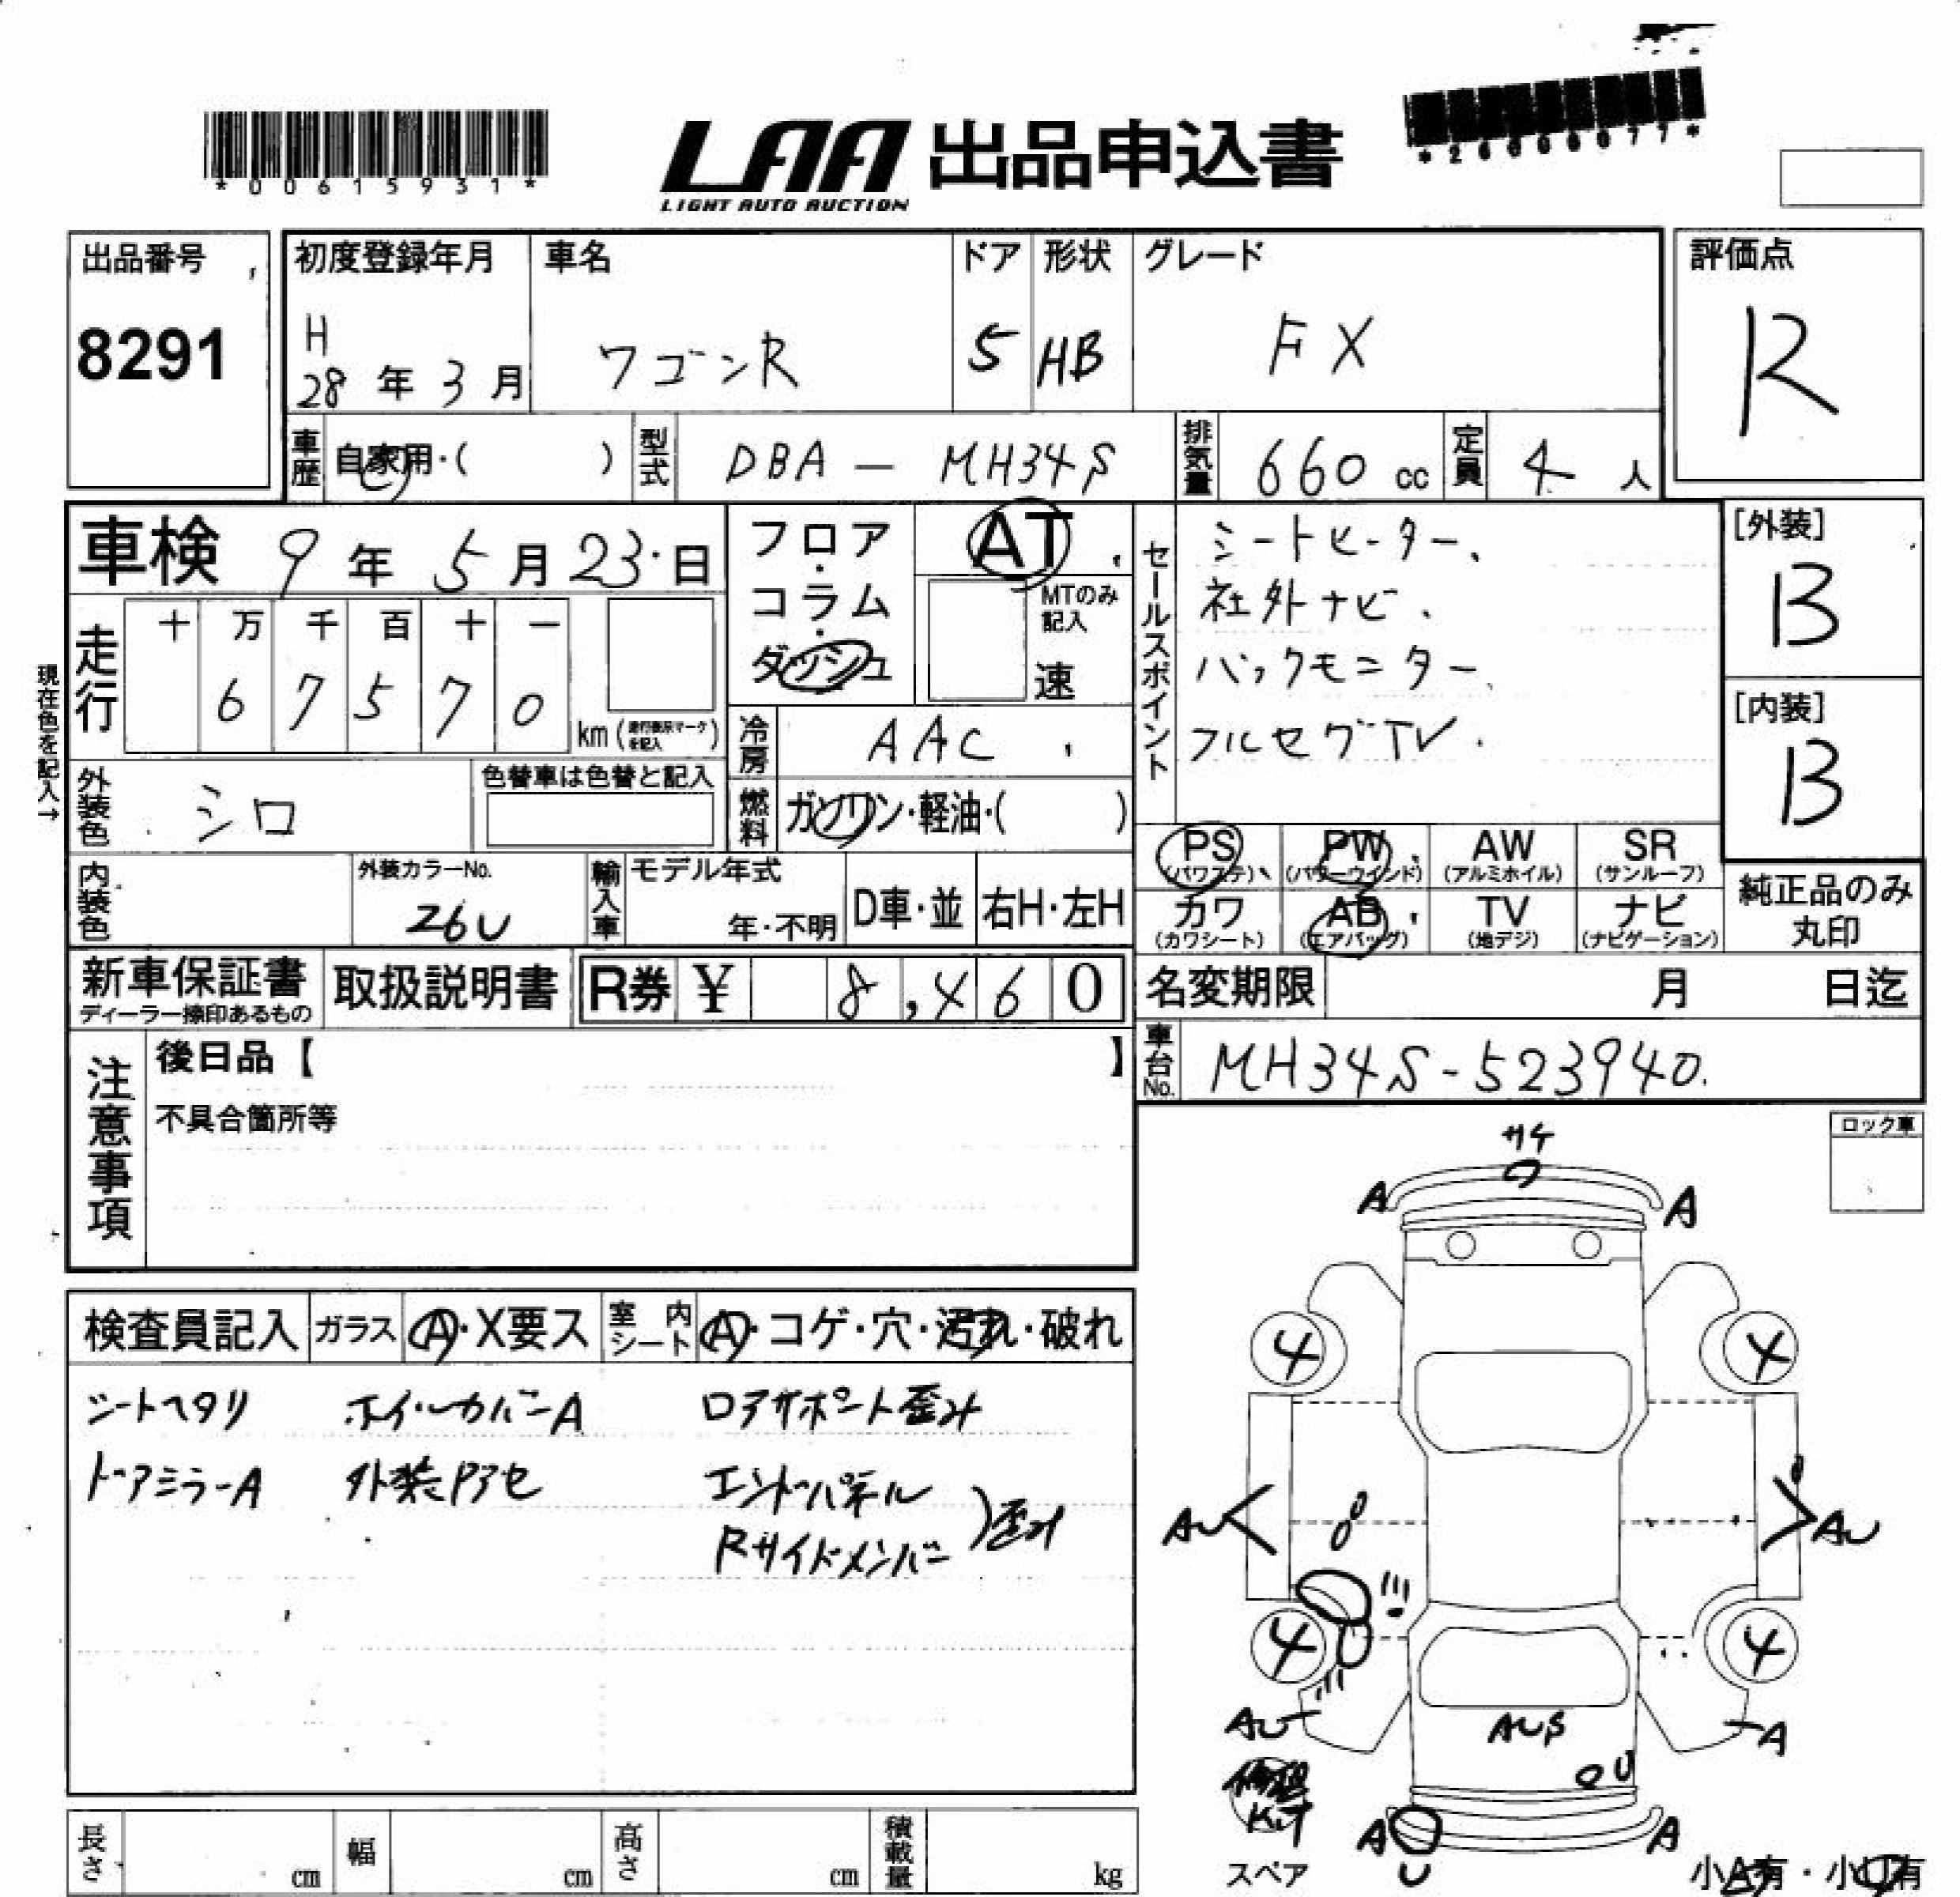 *00615931*
LAA 出品申込書
LIGHT AUTO AUCTION
出品番号
8291
初度登録年月
H
28年3月
車名
ワゴンR
ドア
5
形状
HB
グレード
FX
評価点
R
車歴 自家用・( )
型式 DBA - MH34S
排気量 660cc
定員 4人
車検 9年5月23日
フロア・コラム・ダッシュ
AT
MTのみ記入
速
セールスポイント
シートヒーター、
社外ナビ.
バックモニター
フルセグTV.
[外装]
B
[内装]
B
現在色を記入→
走行
十 万 千 百 十 一
6 7 5 7 0
km
冷房 AAC
外装色 シロ
色替車は色替と記入
燃料 ガソリン・軽油・( )
PS
(パワステ)
PW
(パワーウインド)
AW
(アルミホイル)
SR
(サンルーフ)
カワ
(カワシート)
AB
(エアバッグ)
TV
(地デジ)
ナビ
(ナビゲーション)
純正品のみ
丸印
内装色
外装カラーNo.
26U
輸入車
モデル年式
年・不明
D車・並
右H・左H
新車保証書
ディーラー捺印あるもの
取扱説明書
R券 ¥ 8,460
名変期限 月 日迄
車台No. MH34S-523940.
注意事項
後日品【 】
不具合箇所等
ロック車
検査員記入
ガラス
A・X要ス
室内シート
A・コゲ・穴・汚れ・破れ
シートヘタリ ホイールカバーA ロアサポート歪み
ドアミラーA 外装アセ エンドパネル
Rサイドメンバー
歪み
サケ
A A
4 4
AU AU
4 4
AU
AUS
A
U
修理
Kit
A A
U
スペア
小A有・小U有
長さ cm
幅 cm
高さ cm
積載量 kg